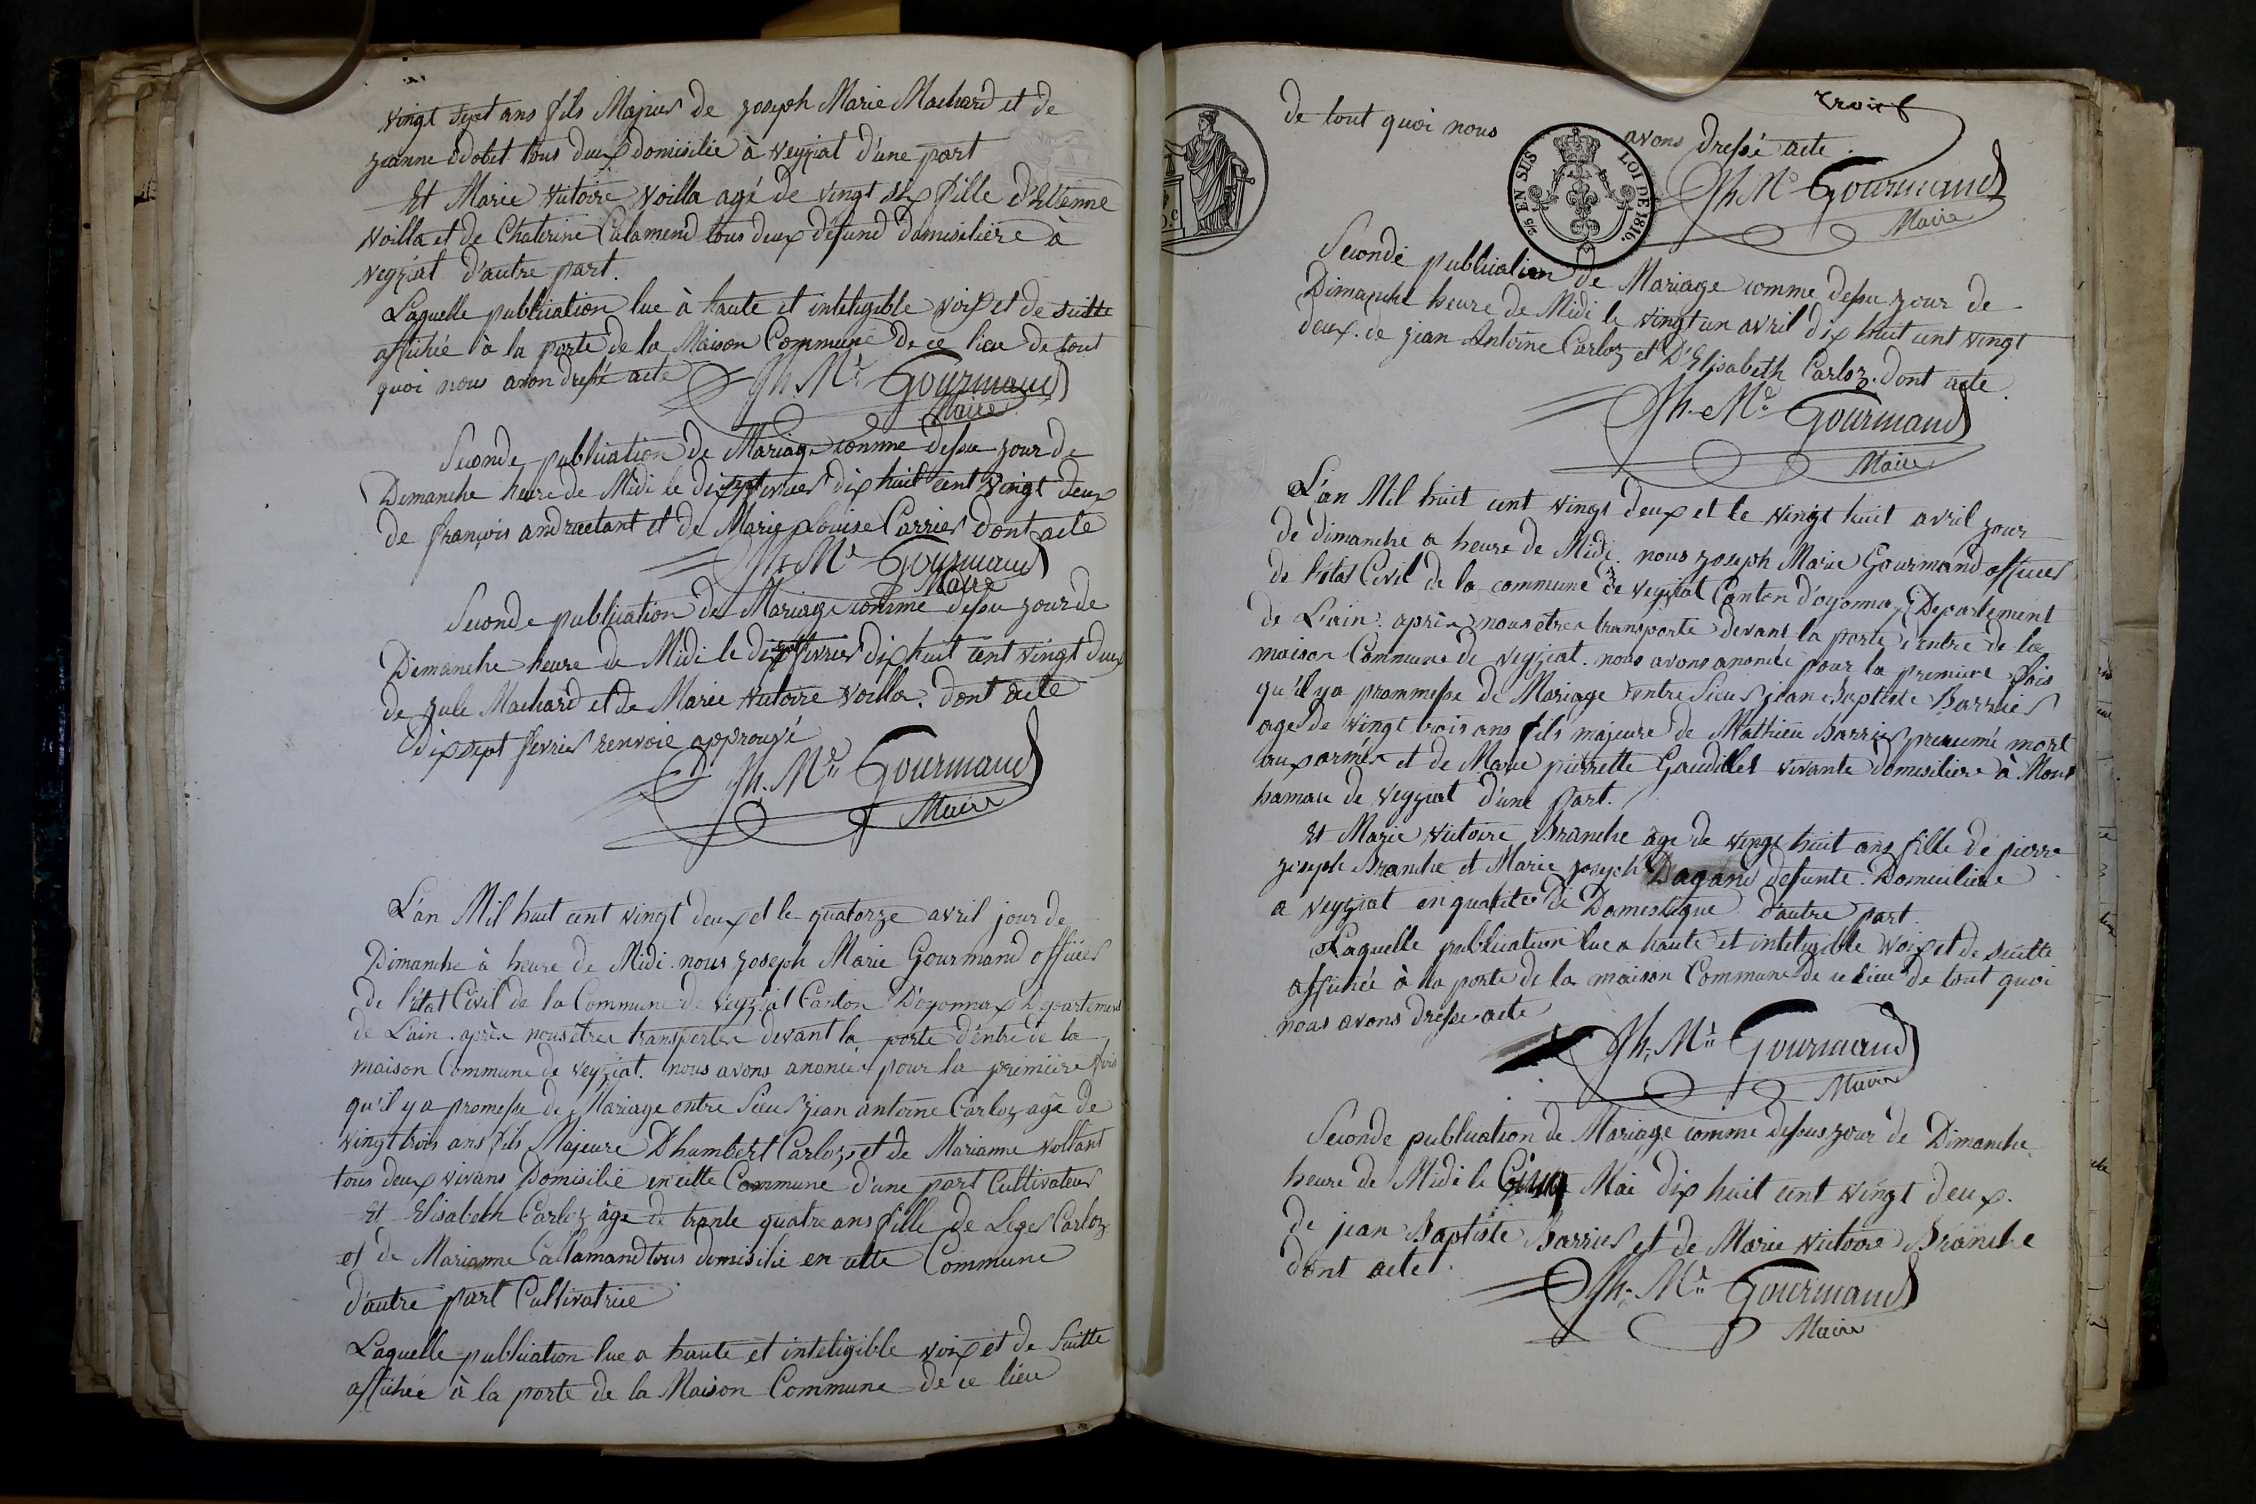 vingt sept ans fils Majeur de Joseph Marie Machard et de
jeanne odobet tous deux domisilié à veyziat d'une part
Et Marie victoire Voilla agé de vingt six fille d'Etienne
Voilla et de Chaterine Calamend tous deux défund domisilière à
veyziat d'autre part.
Laquelle publication lue à haute et inteligible voix et de suitte
affichée à la porte de la Maison Commune de ce lieu de tout
quoi nous avon dressé acte Jh. Me Gourmand
Maire
Seconde publication de Mariage comme dessu jour de
Dimanche heure de Midi le dix sept fevrier dix huit cent vingt deux
de françois andruetant et de Marie Louise Carrier dont acte
Jh Me Gourmand
Maire
Seconde publication de Mariage comme dessu jour de
Dimanche heure de Midi le dix sept fevrier dix huit cent vingt deux
de jule Machard et de Marie victoire Voilla. dont acte
dix sept fevrier renvoie approuvé
Jh. Me Gourmand
Maire
L'an Mil huit cent vingt deux et le quatorze avril jour de
Dimanche à heure de Midi. nous Joseph Marie Gourmand officier
de l'état Civil de la Commune de veyziat Canton D'oyonnax departement
de L'ain. après nous être transporter devant la porte d'entré de la
maison Commune de veyziat. nous avons anoncée pour la première fois
qu'il y a promesse de Mariage entre Sieur jean antoine Carloz agé de
vingt trois ans fils Majeure D'humbert Carloz et de Marianne Vollant
tous deux vivans Domisilié en cette Commune d'une part Cultivateur
Et Elisabeth Carloz âge de trante quatre ans fille de Leger Carloz
et de Marianne Callamand tous domisilié en cette Commune
d'autre part Cultivatrice
Laquelle publication lue a haute et inteligible voix et de Suitte
affichée à la porte de la Maison Commune de ce lieu
trois
de tout quoi nous avons dressé acte.
2/5 EN SUS LOI DE 1816.
Jh Me Gourmand
Maire
Seconde publication de Mariage comme dessu jour de
Dimanche heure de Midi le vingt un avril dix huit cent vingt
deux. de jean Antoine Carloz et D'Elisabeth Carloz. dont acte.
Jh. Me Gourmand
Maire
L'an Mil huit cent vingt deux et le vingt huit avril jour
de dimanche a heure de Midi. nous Joseph Marie Gourmand officier
de l'état Civil de la commune de veyziat Canton d'oyonnax Departement
de L'ain. après nous être transporté devant la porte d'entré de la
maison Commune de veyziat. nous avons anoncée pour la premiere fois
qu'il y a prommesse de Mariage entre Sieur jean Baptiste Barrier
age de vingt trois ans fils majeure de Mathieu Barrier presumé mort
aux armées et de Marie pierrette Gaudillet vivante domisiliere à Mons
hamau de veyziat d'une part.
Et Marie victoire Branche âge de vingt huit ans fille de pierre
joseph Branche et Marie joseph Dagand defunte. Domiciliere
a veyziat en qualité de Domestique d'autre part
Laquelle publication lue a haute et inteligible voix et de suitte
affichée à la porte de la maison Commune de ce lieu de tout quoi
nous avons dresse acte
Jh. Me Gourmand
Maire
Seconde publication de Mariage comme dessus jour de Dimanche
heure de Midi le Cinq Mai dix huit cent vingt deux.
de jean Baptiste Barrier et de Marie victoire Branche
dont acte.
Jh. Me Gourmand
Maire